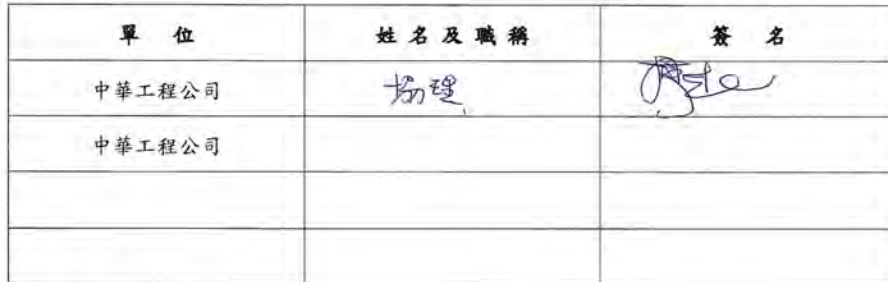 單位 姓名及職稱 簽名
中華工程公司 協理
中華工程公司